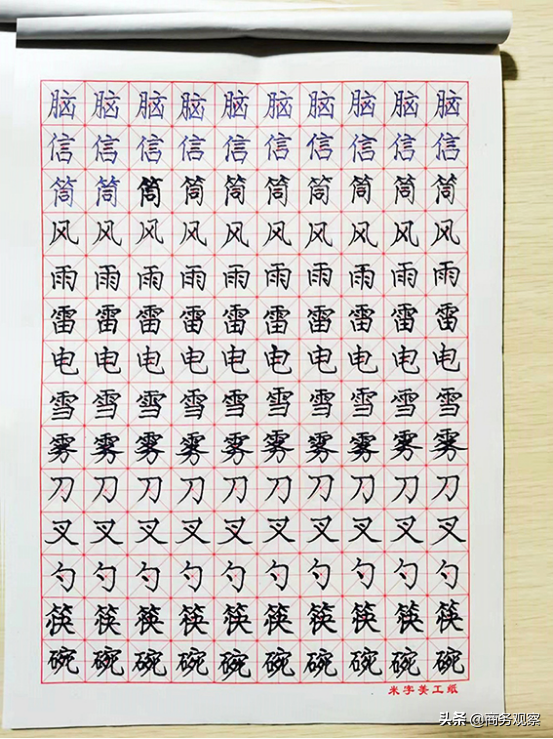 脑脑脑脑脑脑脑脑脑脑
信信信信信信信信信信
筒筒筒筒筒筒筒筒筒筒
风风风风风风风风风风
雨雨雨雨雨雨雨雨雨雨
雷雷雷雷雷雷雷雷雷雷
电电电电电电电电电电
雪雪雪雪雪雪雪雪雪雪
雾雾雾雾雾雾雾雾雾雾
刀刀刀刀刀刀刀刀刀刀
叉叉叉叉叉叉叉叉叉叉
勺勺勺勺勺勺勺勺勺勺
筷筷筷筷筷筷筷筷筷筷
碗碗碗碗碗碗碗碗碗碗
米字美工纸
头条 @商务观察